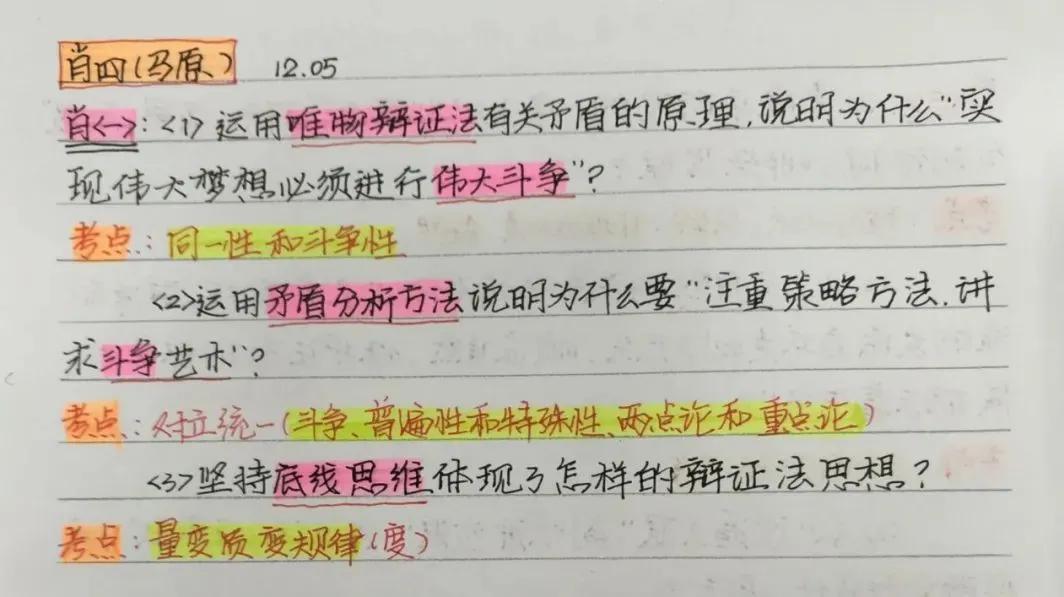 肖四(马原) 12.05
肖<一>:<1>运用唯物辩证法有关矛盾的原理,说明为什么“实
现伟大梦想必须进行伟大斗争”?
考点:同一性和斗争性
<2>运用矛盾分析方法说明为什么要“注重策略方法.讲
求斗争艺术”?
考点:对立统一(斗争、普遍性和特殊性、两点论和重点论)
<3>坚持底线思维体现了怎样的辩证法思想?
考点:量变质变规律(度)